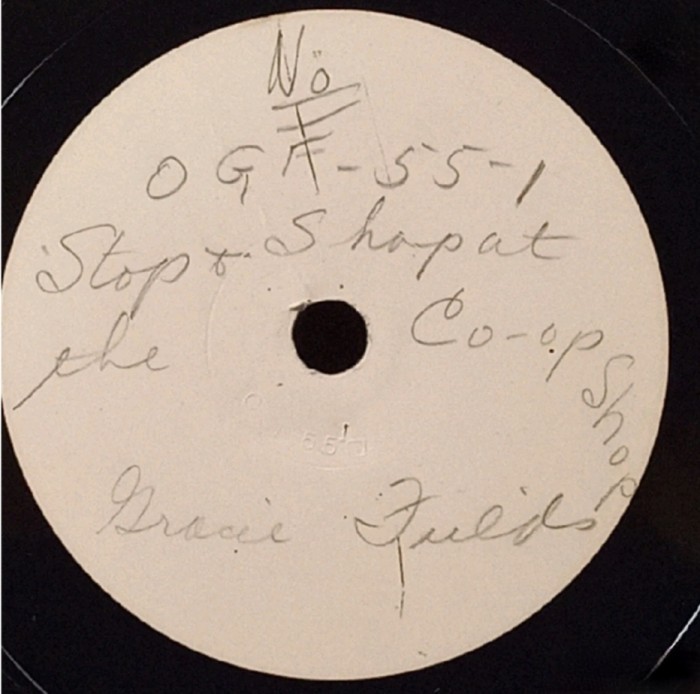 No
OGF-55-1
Stop & Shop at
the Co-op Shop
Gracie Fields